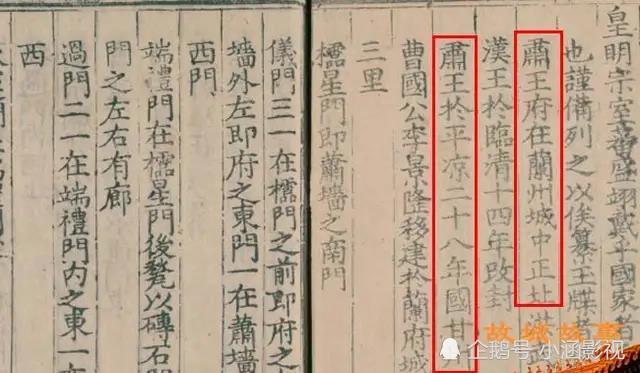 皇明宗室蕃盛翊戴乎國家者
也謹備列之以俟纂玉牒者
肅王府在蘭州城中正址洪
漢王於臨清十四年改封
肅王於平凉二十八年國甘州
曹國公李景隆移建於蘭府城
三里
櫺星門即蕭墻之南門
儀門三一在櫺門之前即府之
墻外左即府之東門一在蕭墻
西門
端禮門在櫺星門後甃以磚石門
門之左右有廊
過門二一在端禮門内之東一
西
企鹅号 小涵影视